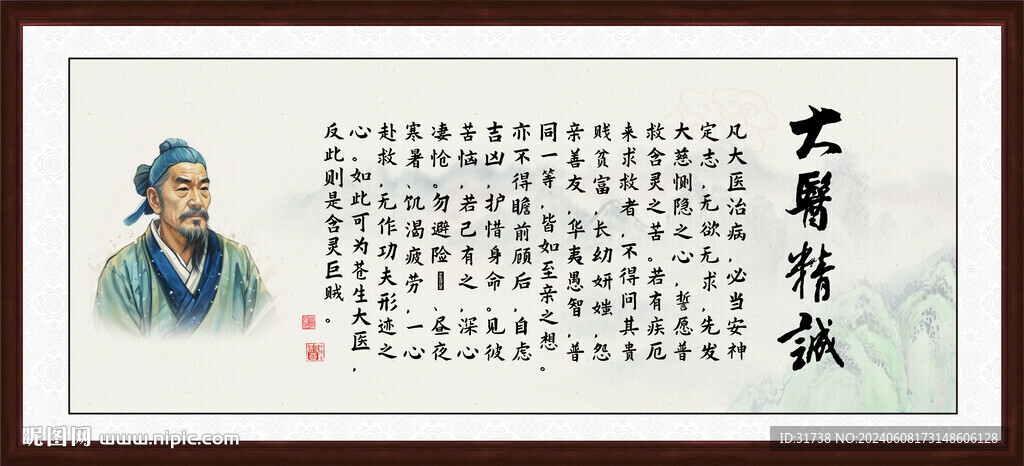 大醫精誠
凡大医治病，必当安神
定志，无欲无求，先发
大慈恻隐之心，誓愿普
救含灵之苦。若有疾厄
来求救者，不得问其贵
贱贫富，长幼妍媸，怨
亲善友，华夷愚智，普
同一等，皆如至亲之想。
亦不得瞻前顾后，自虑
吉凶，护惜身命。见彼
苦恼，若己有之，深心
凄怆。勿避险、昼夜
寒暑、饥渴疲劳，一心
赴救，无作功夫形迹之
心。如此可为苍生大医，
反此则是含灵巨贼。
昵图网 www.nipic.com
ID:31738 NO:20240608173148606128